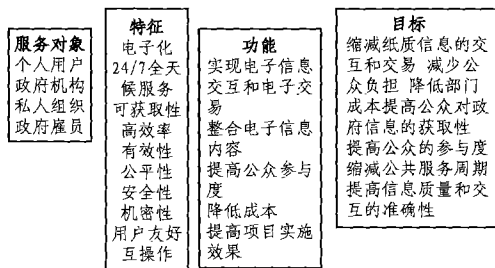 服务对象
个人用户
政府机构
私人组织
政府雇员
特征
电子化
24/7全天
候服务
可获取性
高效率
有效性
公平性
安全性
机密性
用户友好
互操作
功能
实现电子信息
交互和电子交
易
整合电子信息
内容
提高公众参与
度
降低成本
提高项目实施
效果
目标
缩减纸质信息的交
互和交易 减少公
众负担 降低部门
成本提高公众对政
府信息的获取性
提高公众的参与度
缩减公共服务周期
提高信息质量和交
互的准确性